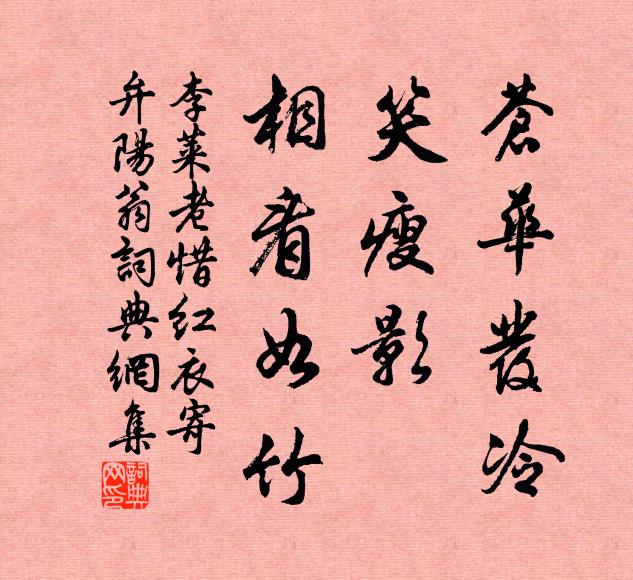 蒼華發冷
笑瘦影
相看如竹
李萊老惜紅衣寄
弁陽翁詞典網集
詞典網印